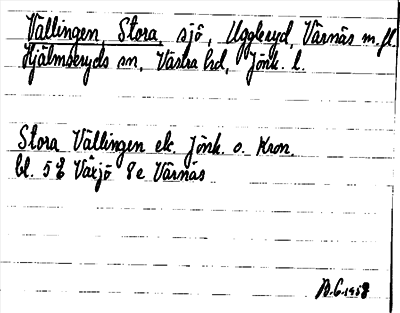 Vällingen, Stora sjö, Uggleryd, Värnäs m.fl.
Hjälmseryds sn, Västra hd, Jönk. l.
Stora Vällingen ek. Jönk. o. Kron.
bl. 5 E Växjö 8e Värnäs
B.C. 1958